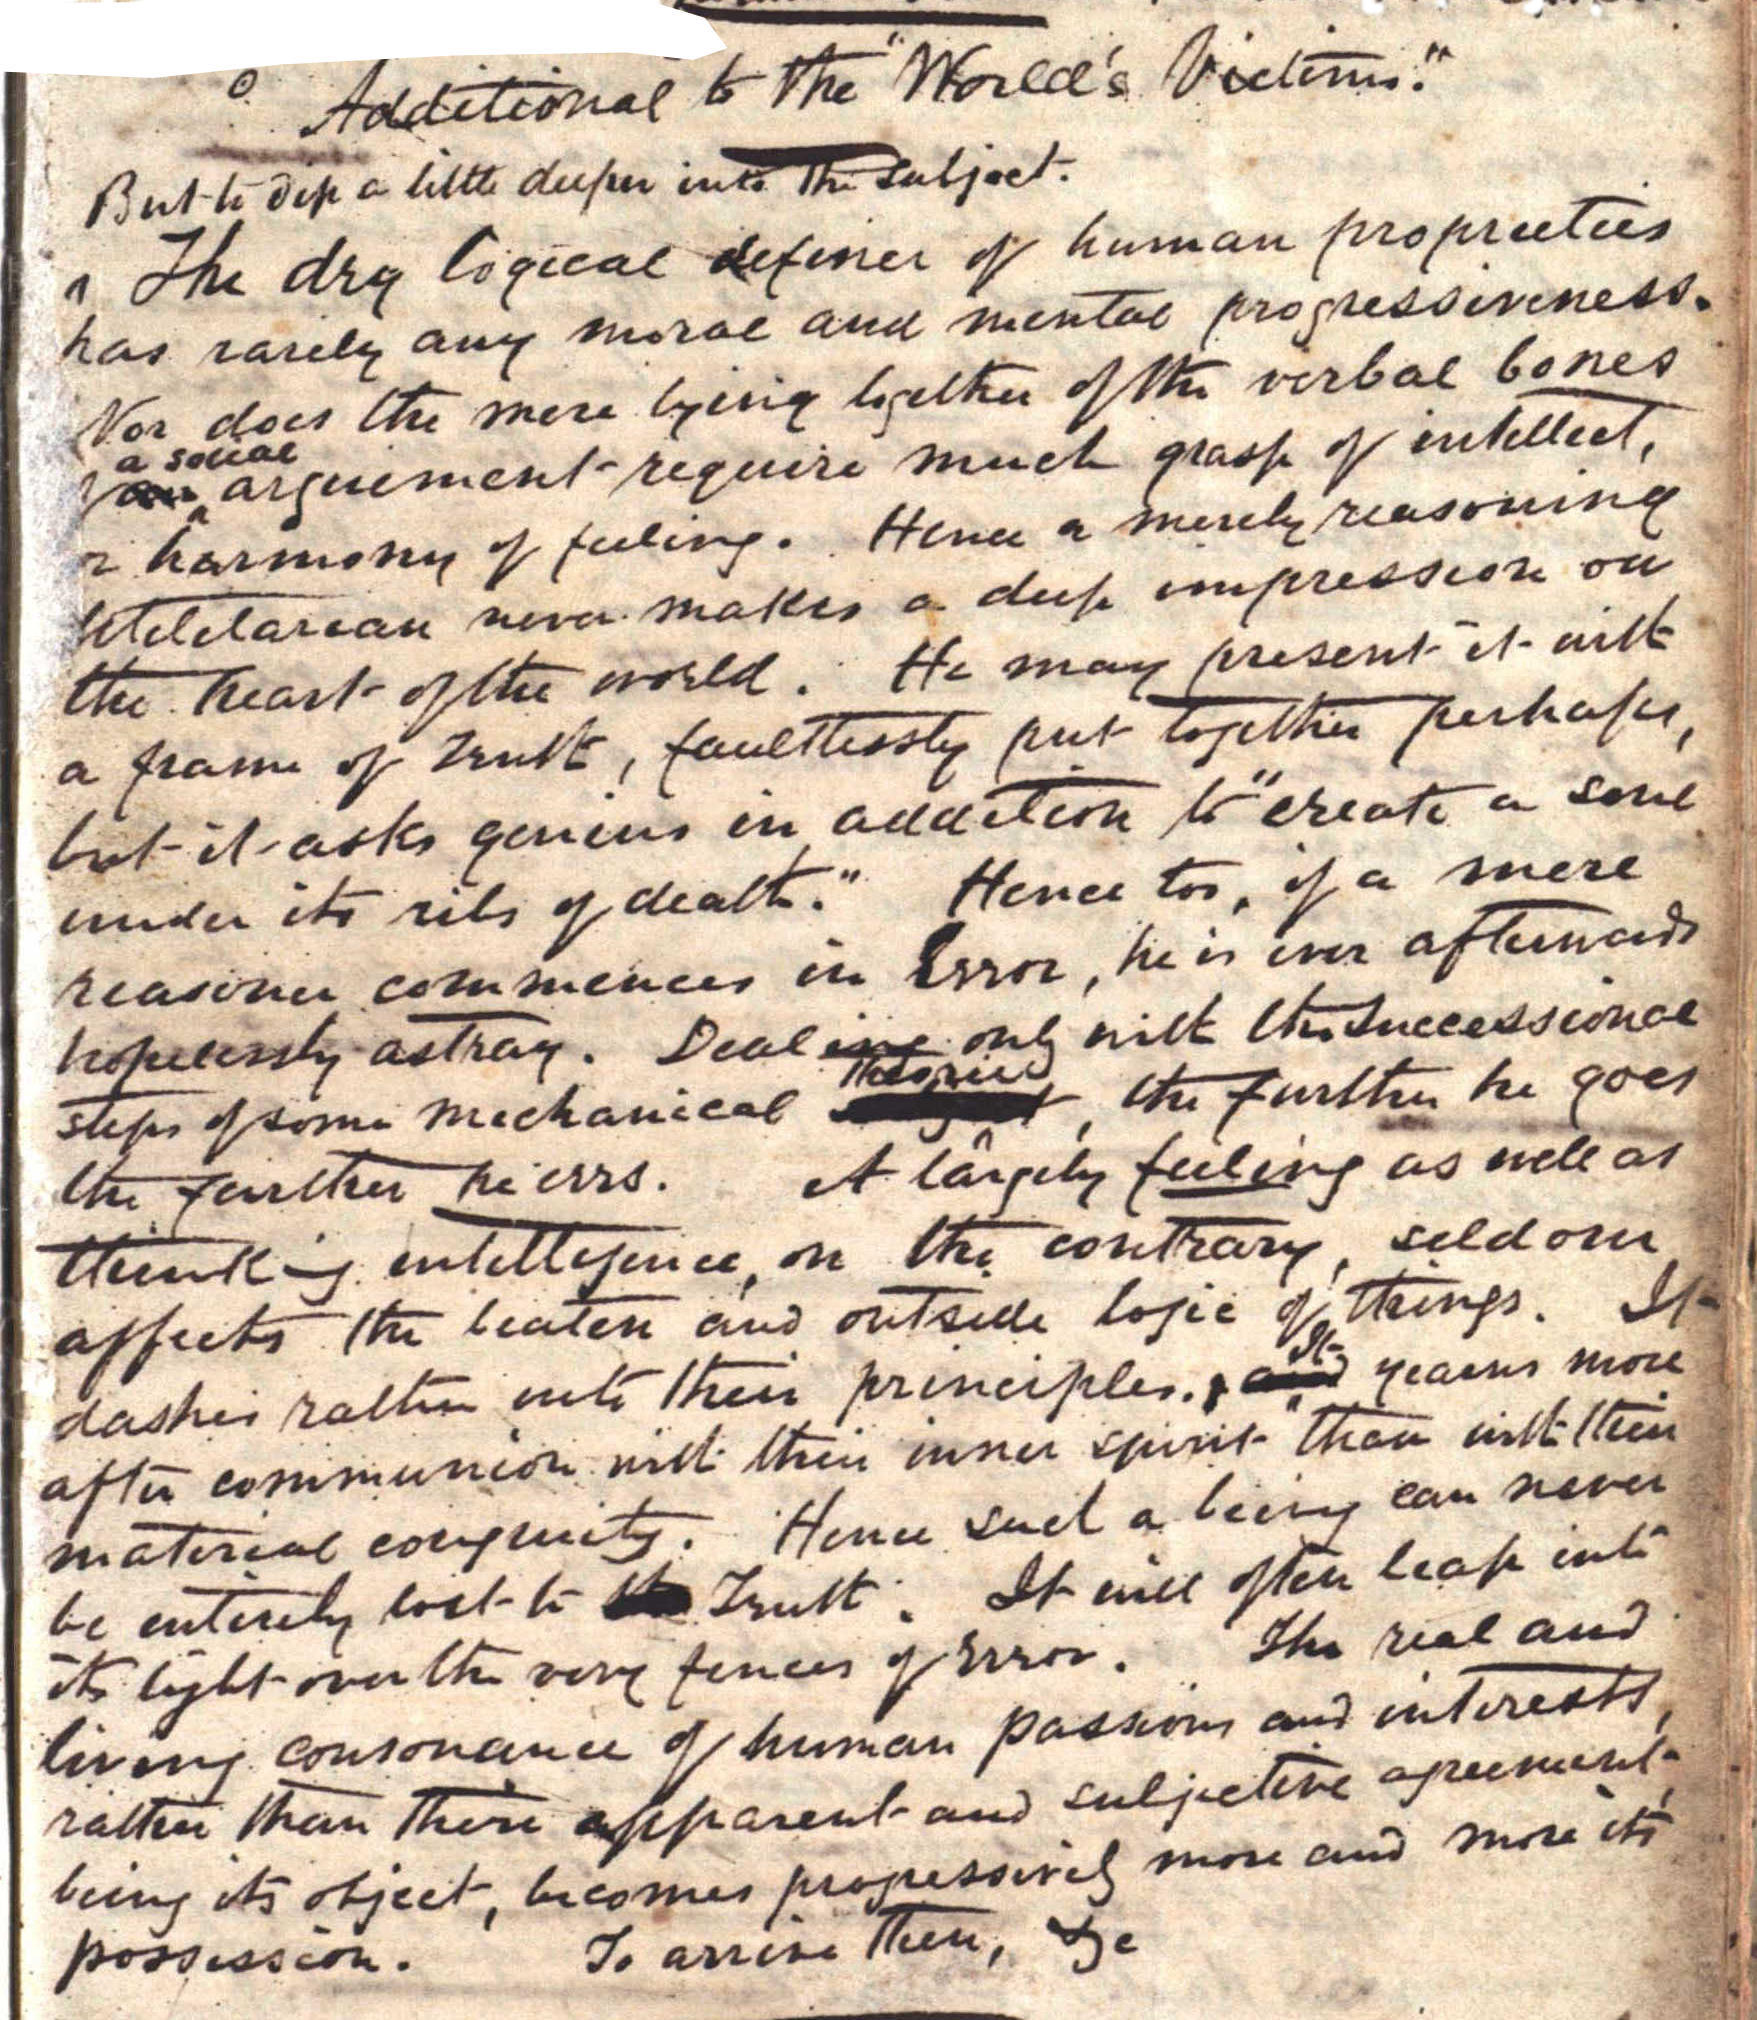 Additional to the "World's Victims."
But to dip a little deeper into the subject.
The dry logical definer of human proprieties
has rarely any moral and mental progressiveness.
Nor does the mere tying together of the verbal bones
a social
arguement require much grasp of intellect,
or harmony of feeling. Hence a merely reasoning
Utilitarian never makes a deep impression on
the heart of the world. He may present it with
a frame of Truth, faultlessly put together perhaps,
but it asks genius in addition to "create a soul
under its ribs of death." Hence too, if a mere
reasoner commences in Error, he is ever afterwards
hopelessly astray. Dealing only with the successional
theories
steps of some mechanical , the further he goes
the further he errs. A largely feeling as well as
thinking intelligence, on the contrary, seldom
affects the beaten and outside logic of things. It
It
dashes rather into their principles. and yearns more
after communion with their inner spirit than with their
material congruity. Hence such a being can never
be entirely lost to the Truth. It will often leap into
its light over the very fences of Error. The real and
living consonance of human passions and interests,
rather than their apparent and subjective agreement,
being its object, becomes progressively more and more its
possession. To arrive then, &c